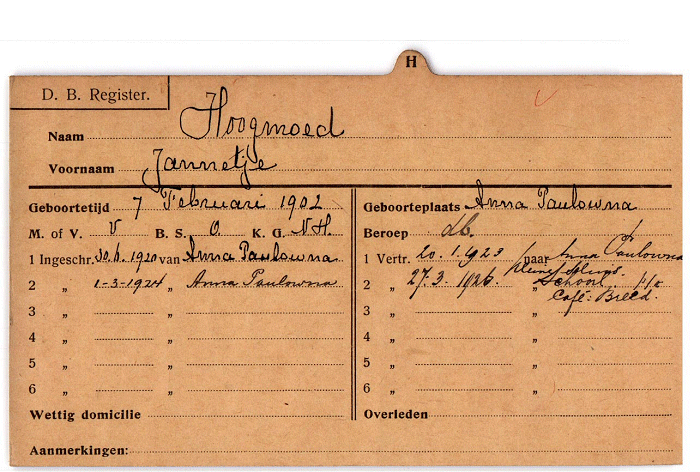 H
D. B. Register.
Naam Hoogmoed
Voornaam Jannetje
Geboortetijd 7 Februari 1902
Geboorteplaats Anna Paulowna
M. of V. V B. S. O. K. G. N H.
Beroep db.
1 Ingeschr. 30.6. 1920 van Anna Paulowna
1 Vertr. 20. 1. 1923 naar Anna Paulowna
2 „ 1-3-1924 „ Anna Paulowna
2 „ 27. 3. 1926. „ Schoorl p/a
Café. Breed.
3 „ „
3 „ „
4 „ „
4 „ „
5 „ „
5 „ „
6 „ „
6 „ „
Wettig domicilie
Overleden
Aanmerkingen: